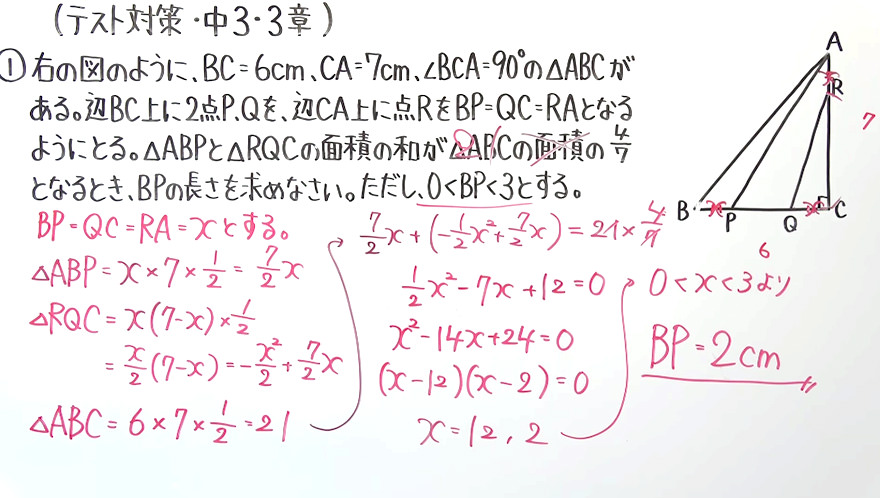 (テスト対策・中3・3章)
① 右の図のように、BC=6cm、CA=7cm、∠BCA=90°の△ABCが
ある。辺BC上に2点P、Qを、辺CA上に点RをBP=QC=RAとなる
ようにとる。△ABPと△RQCの面積の和が△ABCの面積の4/7
21
となるとき、BPの長さを求めなさい。ただし、0<BP<3とする。
BP=QC=RA=xとする。
△ABP=x×7×1/2=7/2x
△RQC=x(7-x)×1/2
=x/2(7-x)=-x²/2+7/2x
△ABC=6×7×1/2=21
7/2x+(-1/2x²+7/2x)=21×4/7
1/2x²-7x+12=0
x²-14x+24=0
(x-12)(x-2)=0
x=12,2
0<x<3より
BP=2cm
A
x
R
7
B
x
P
Q
x
C
6